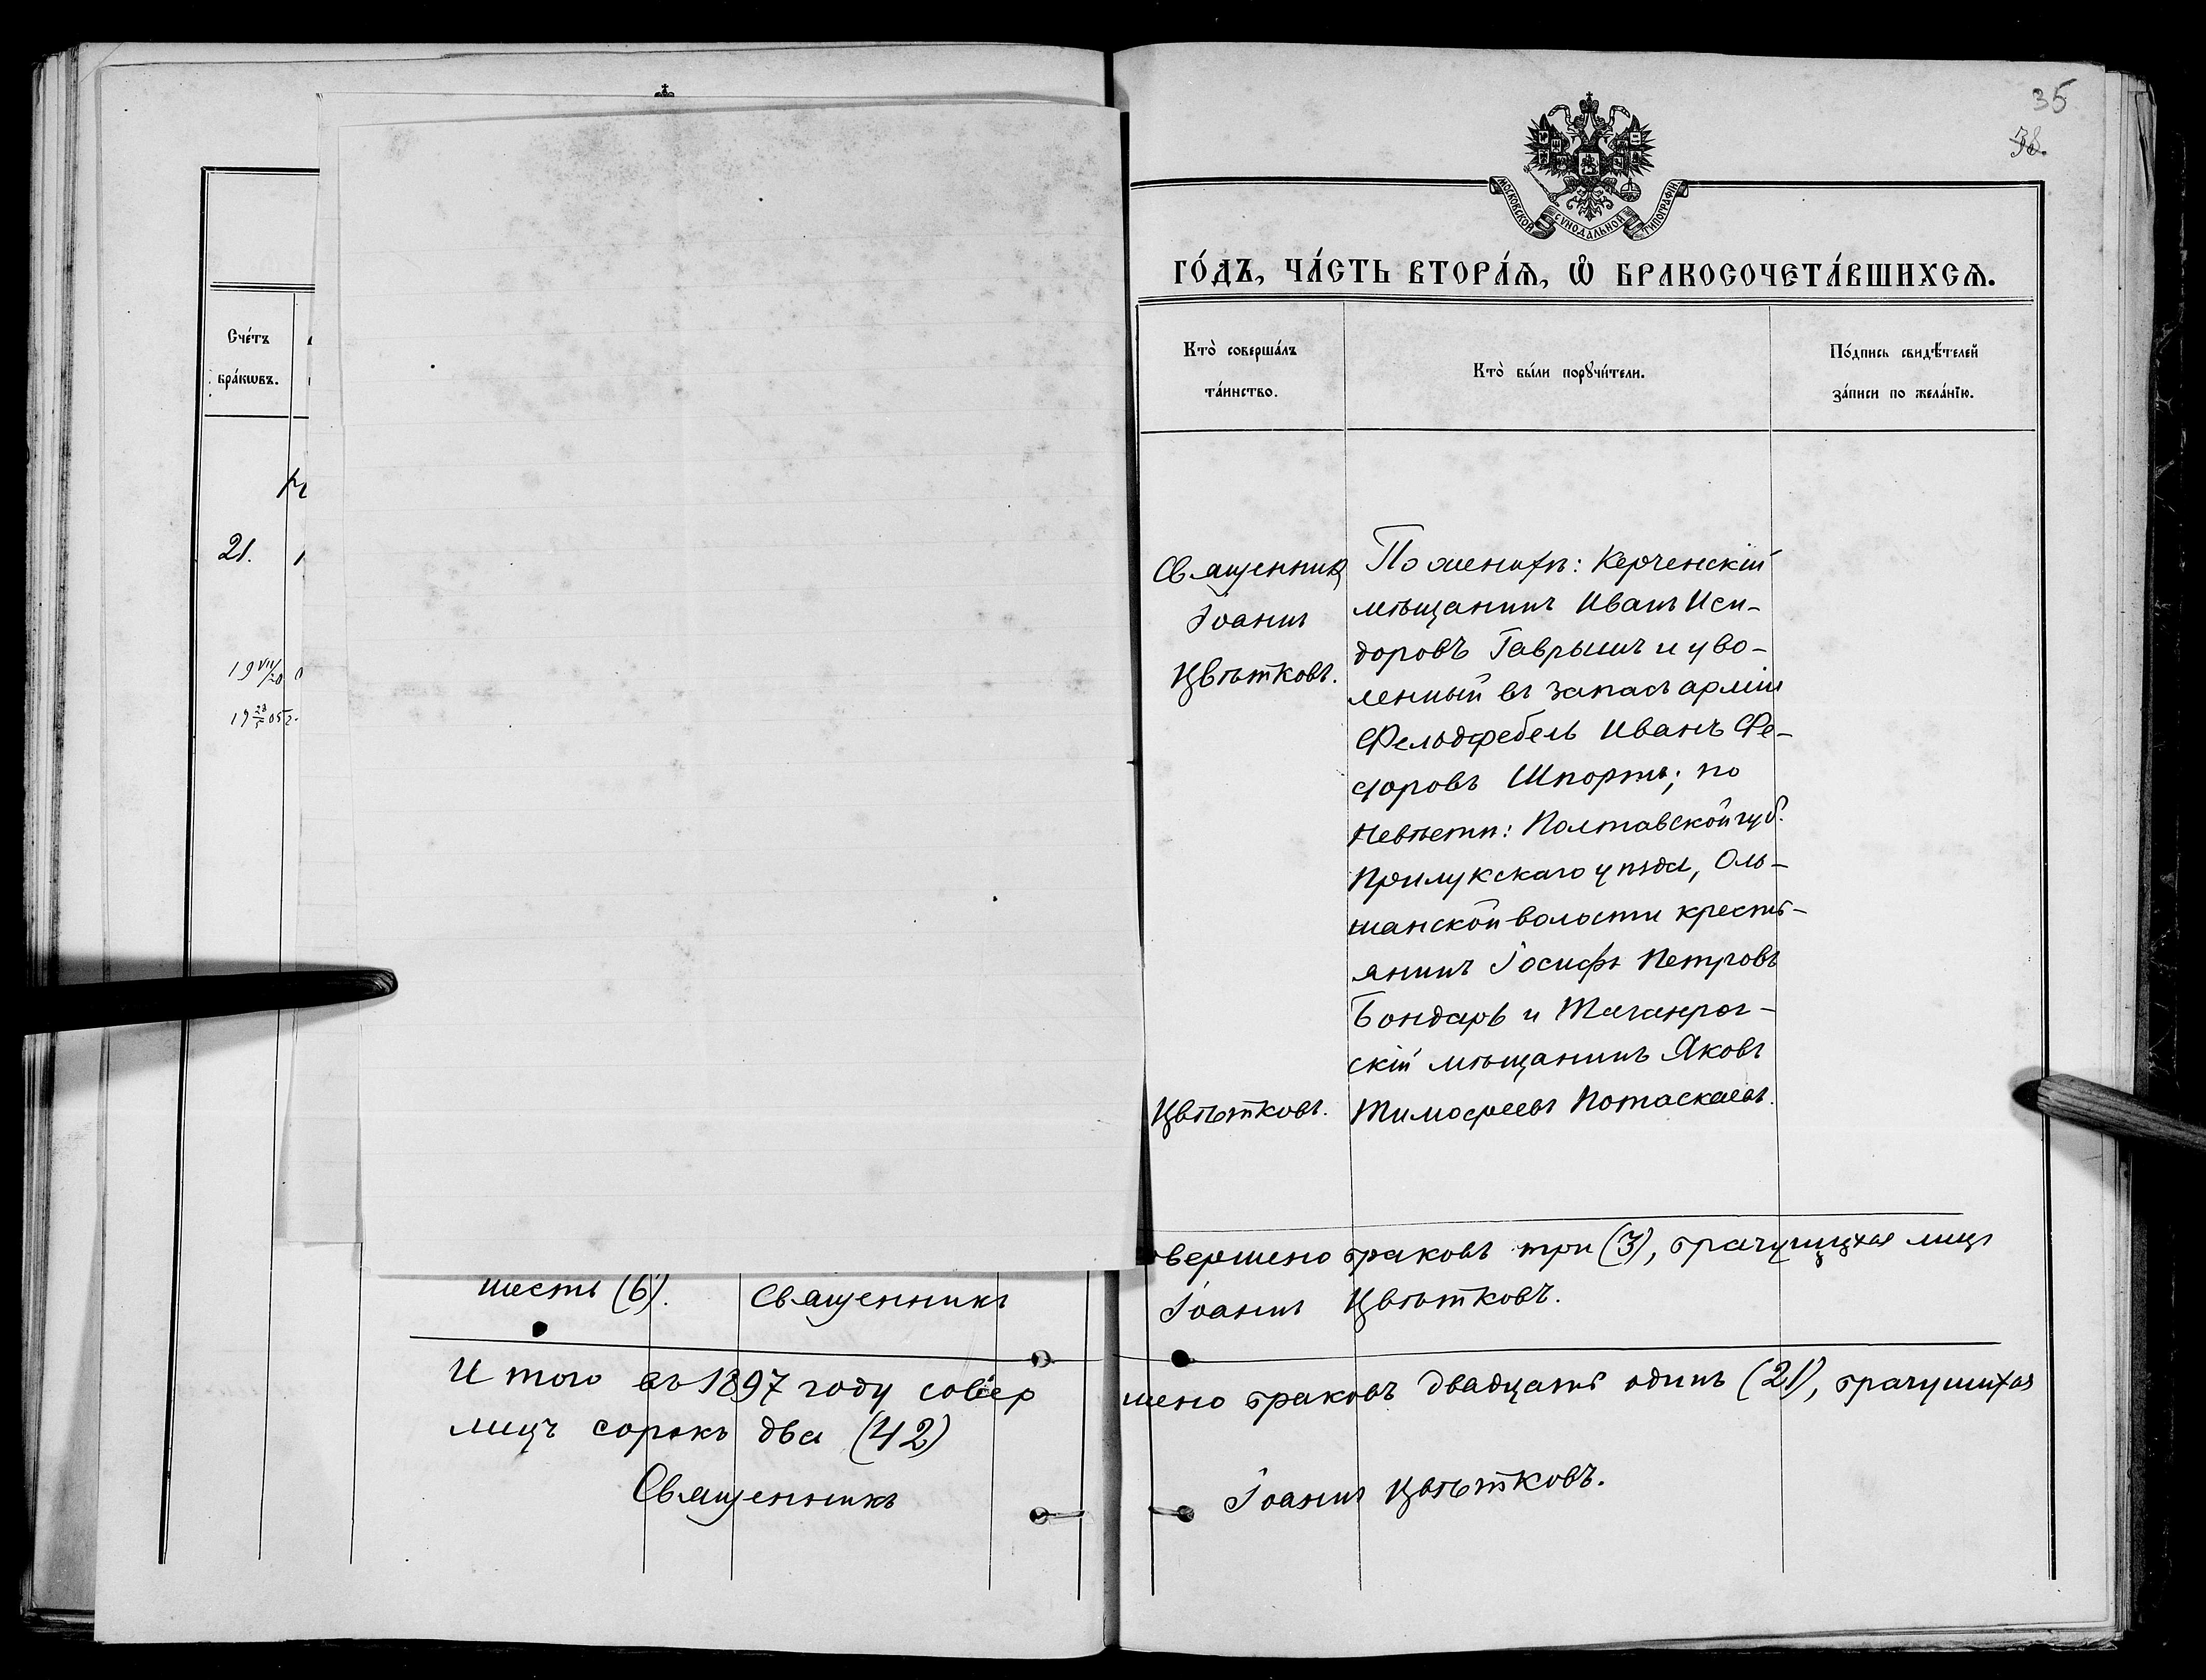 35
38.
МОСКОВСКОЙ СѴНОДАЛЬНОЙ ТИПОГРАФІИ
ГО́ДЪ, ЧА́СТЬ ВТОРА́Ѧ, Ѽ БРАКОСОЧЕТА́ВШИХСѦ.
Сче́тъ
бра́кѡвъ.
Кто̀ соверша́лъ
та́инство.
Кто̀ бы́ли порꙋчи́тели.
По́дпись свидѣ́телей
за́писи по жела́нїю.
21.
19 VII/20
19 23/5 05 г.
Священникъ
Іоаннъ
Цвѣтковъ.
Цвѣтковъ.
По женихѣ: Керченскій
мѣщанинъ Иванъ Иси-
доровъ Гаврышъ и уво-
ленный въ запасъ арміи
Фельдфебель Иванъ Фе-
доровъ Шпорть; по
Невѣстѣ: Полтавской губ.
Прилукскаго уѣзда, Оль-
шанской волости кресть-
янинъ Іосифъ Петровъ
Бондарь и Таганрог-
скій мѣщанинъ Яковъ
Тимофеевъ Потаскаевъ.
овершено браковъ три (3), брачущихся лицъ
шесть (6). Священникъ Іоаннъ Цвѣтковъ.
Итого въ 1897 году совер шено браковъ двадцать одинъ (21), брачущихся
лицъ сорокъ два (42)
Священникъ Іоаннъ Цвѣтковъ.